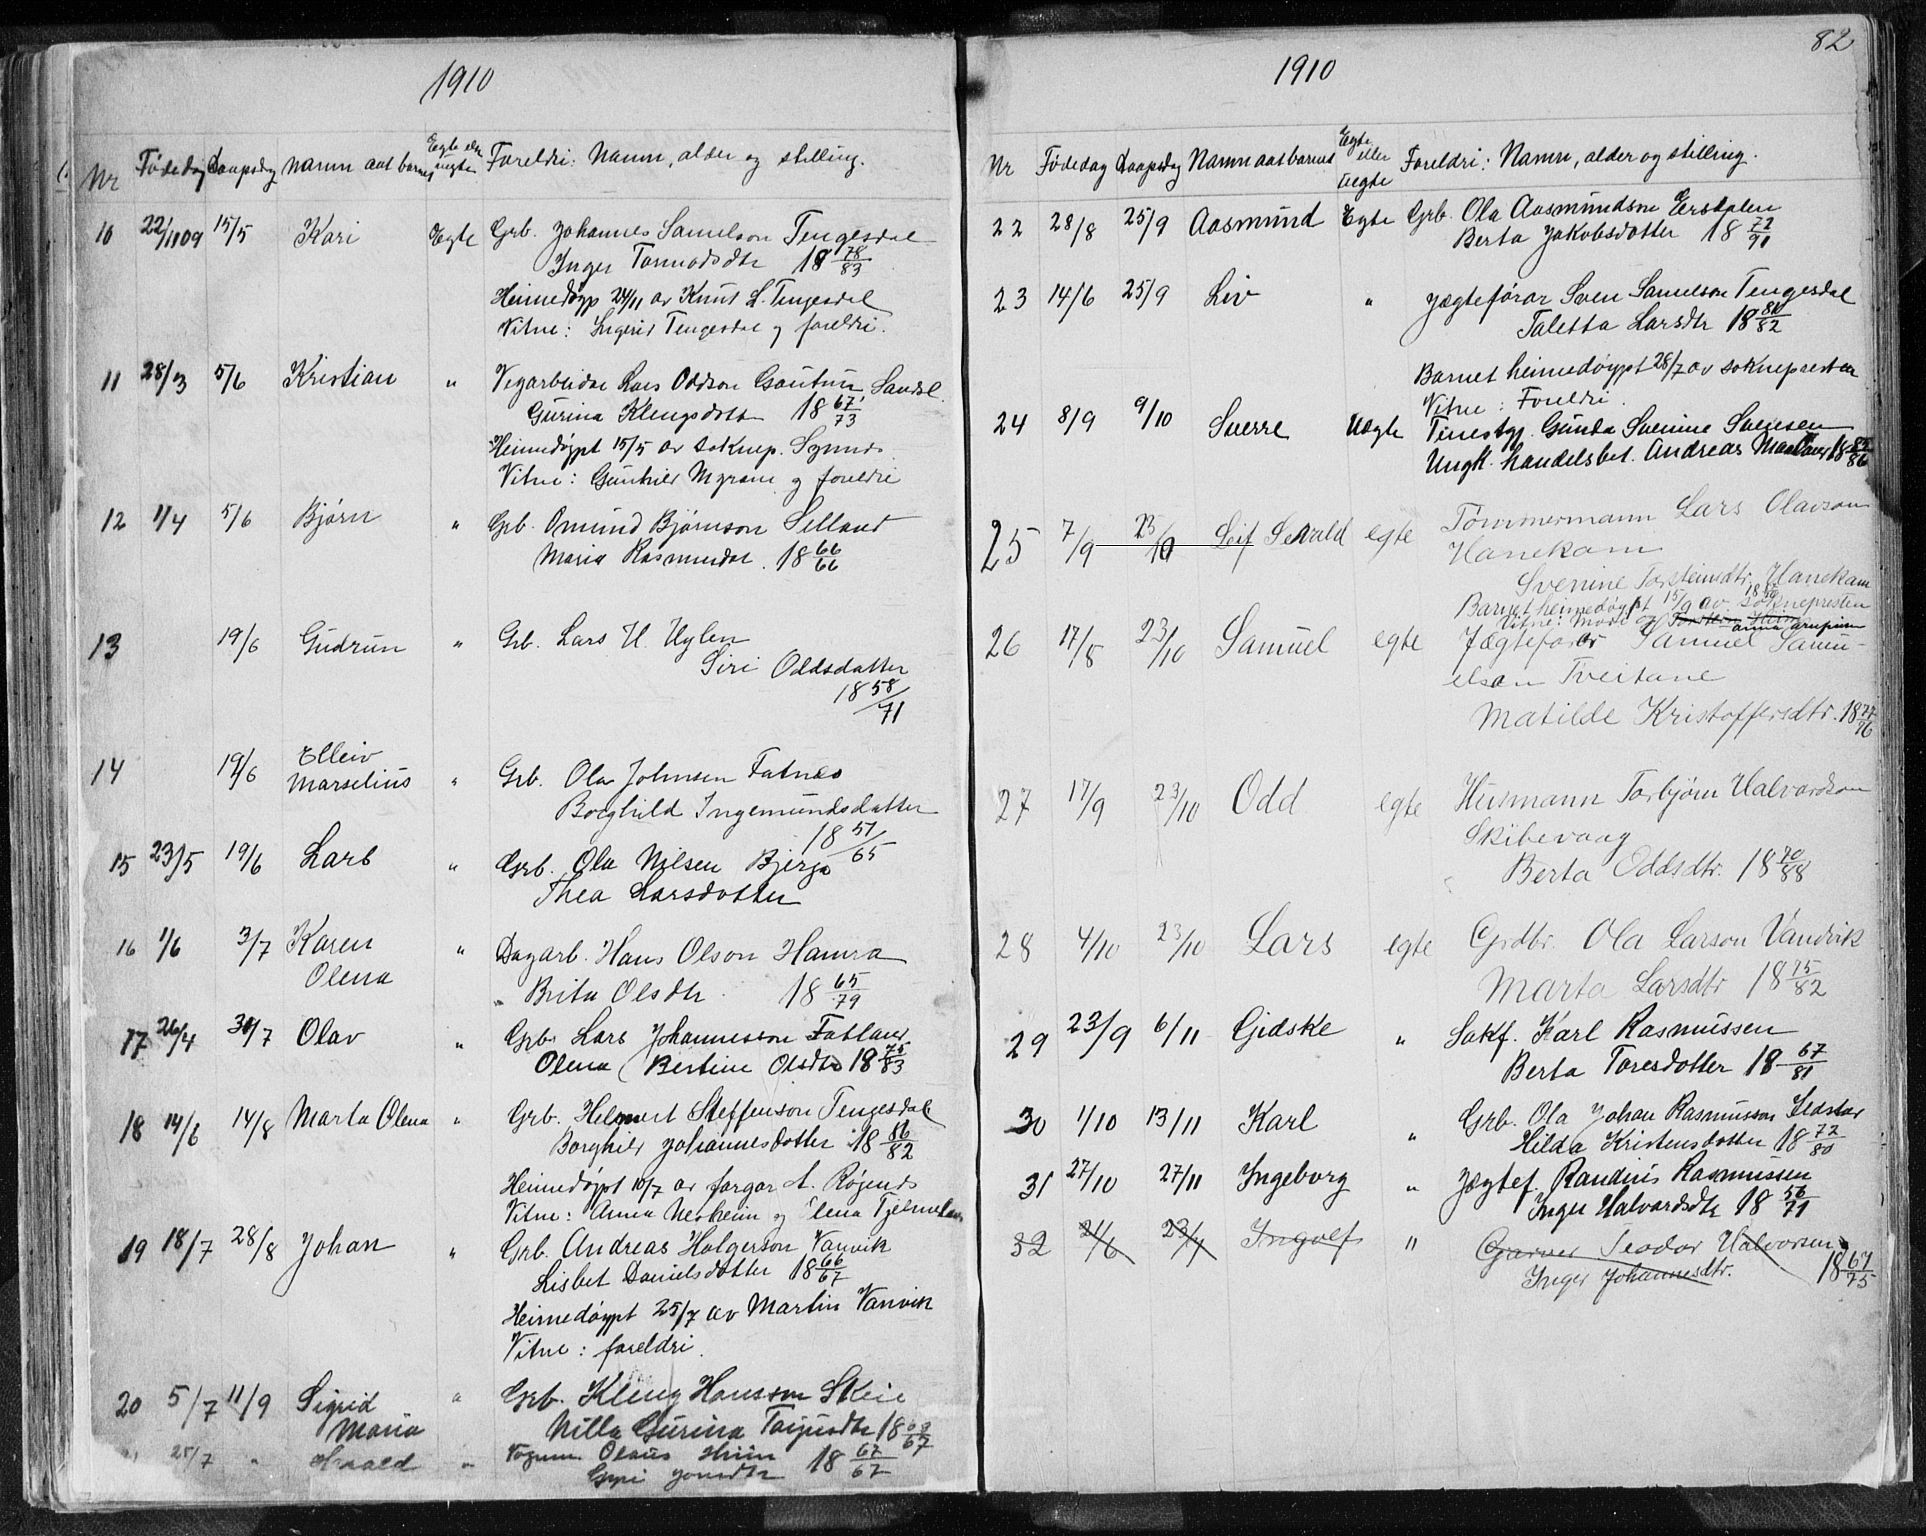 1910
Nr Fødedag Daapsdag Namn aat barnet Egte elr uegte Foreldri: Namn, alder og stilling.
10 22/11 09 15/5 Kari Egte Grb. Johannes Samelson Tengesdal
Inger Tormodsdtr 18 78/83
Heimedøypt 24/11 av Knut L. Tengesdal
Vitne: Ingerid Tengesdal og foreldri.
11 28/3 5/6 Kristian " Vegarbeidar Lars Oddson Gautun, Sandsl.
Gurina Klengsdott 18 67/73
Heimedøypt 15/5 av soknep.
Vitne: Gunhild og foreldri
12 1/4 5/6 Bjørn " Grb. Omund Bjørnson Selland
Maria Rasmusdtr. 18 66/66
13 19/6 Gudrun " Grb. Lars H. Hylen
Siri Oddsdatter
18 58/71
14 19/6 Elleiv
Marselius " Grb. Ola Johnsen Fatnes
Borghild Ingemundsdatter
18 57/65
15 23/5 19/6 Lars " Grb. Ola Nilsen Bjerga
Thea Larsdotter
16 1/6 3/7 Karen
Olena " Dagarb. Hans Olson Hamra
" Brita Olsdtr. 18 65/79
17 26/4 30/7 Olav " Grb. Lars Johannesson Fatland
Olena Bertine Olsdtr 18 75/83
18 14/6 14/8 Marta Olena " Grb. Helmert Steffenson Tengesdal
Borghild Johannesdotter 18 86/82
Heimedøypt 10/7 av fargar A. Røgenes
Vitne: Anna Nesheim og Elena Tjelmeland
19 18/7 28/8 Johan " Grb. Andreas Holgerson Vanvik
Lisbet Danielsdotter 18 66/67
Heimedøypt 25/7 av Martin Vanvik
Vitne: foreldri.
20 5/7 11/9 Sigrid
Maria " Grb. Kleng Hansson Skeie
Nilla Gurina Tarjusdtr 18 /67
25/7 " Harald " Vognm. Olaus Hiim 18 67/67
Guri Jonsdtr
82
1910
Nr Fødedag Daapsdag Namn aat barnet Egte eller Uegte Foreldri: Namn, alder og stilling.
22 28/8 25/9 Aasmund Egte Grb. Ola Aasmundson Ersdalen
Berta Jakobsdotter 18 72/91
23 14/6 25/9 Liv " Jægteførar Sven Samelson Tengesdal
Taletta Larsdtr 18 80/82
Barnet heimedøypt 28/7 av soknepresten
Vitne: Foreldri.
24 8/9 9/10 Sverre Uegte Tenestgj. Gunda Svenine Svensen
Ungk. handelsbet. Andreas Maaland 18 85/86
25 7/9 23/10 Leif Sevald egte Tømmermann Lars Olavson
Hanekam
Svenine Torsteinsdtr. Hanekam
Barnet heimedøypt 15/9 av soknepresten
Vitne: Mori og
26 17/8 23/10 Samuel egte Jægteførar Samuel Samu-
elson Tveitane
Matilde Kristoffersdtr. 18 77/76
27 17/9 23/10 Odd egte Husmann Torbjørn Halvardson
Skibevaag
Berta Oddsdtr. 18 70/88
28 4/10 23/10 Lars egte Grdbr. Ola Larson Vandvik
Marta Larsdtr 18 75/82
29 23/9 6/11 Gidske " Sakf. Karl Rasmussen
Berta Toresdotter 18 67/81
30 1/10 13/11 Karl " Grb. Ola Johan Rasmusson
Hilda Kristensdotter 18 72/80
31 27/10 27/11 Ingeborg " Jægtef. Randius Rasmussen
Inger Halvardsdtr 18 56/71
32 21/6 23/7 Ingolf " Garver Teodor Halvorsen
Inger Johannesdtr. 18 67/75